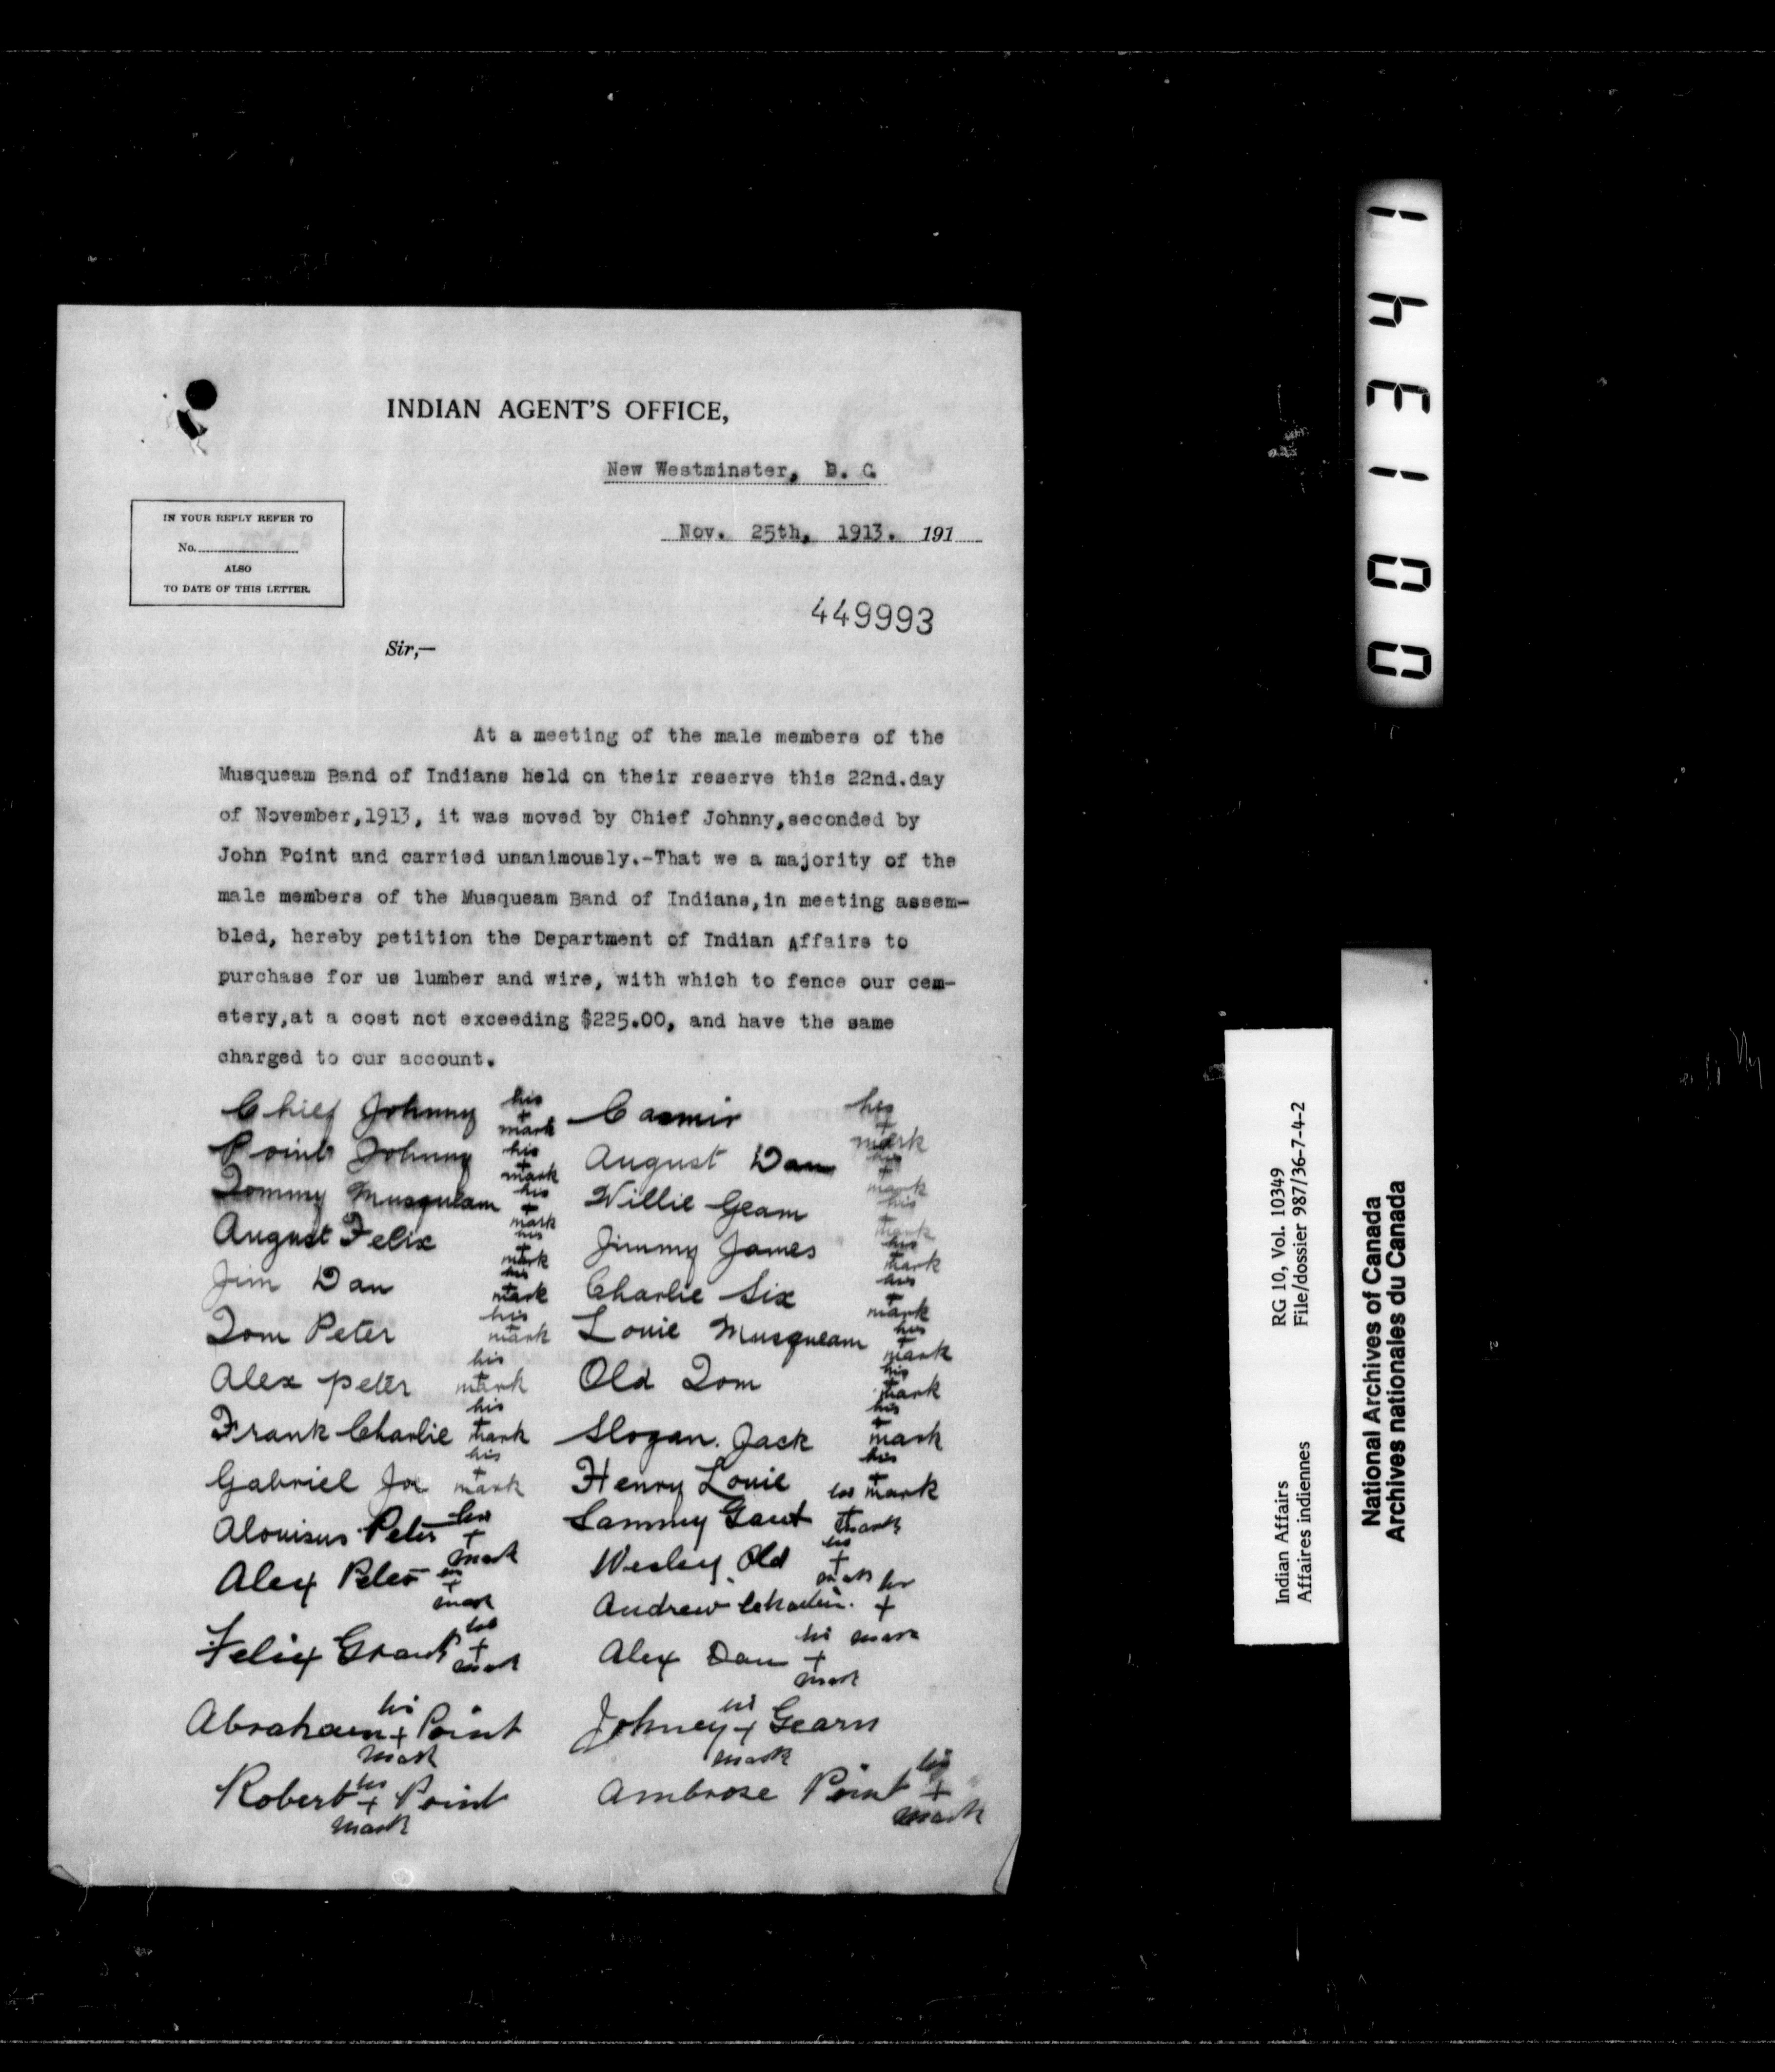 INDIAN AGENT'S OFFICE,
New Westminster, B. C.
Nov. 25th, 1913. 191
IN YOUR REPLY REFER TO
No.
ALSO
TO DATE OF THIS LETTER.
449993
Sir,—
At a meeting of the male members of the
Musqueam Band of Indians held on their reserve this 22nd.day
of November,1913, it was moved by Chief Johnny,seconded by
John Point and carried unanimously.-That we a majority of the
male members of the Musqueam Band of Indians,in meeting assem-
bled, hereby petition the Department of Indian Affairs to
purchase for us lumber and wire, with which to fence our cem-
etery,at a cost not exceeding $225.00, and have the same
charged to our account.
Chief Johnny his + mark Casmir his + mark
Point Johnny his + mark August Dan his + mark
Tommy Musqueam his + mark Willie Geam his + mark
August Felix his + mark Jimmy James his + mark
Jim Dan his + mark Charlie Six his + mark
Tom Peter his + mark Louie Musqueam his + mark
Alex peter his + mark Old Tom his + mark
Frank Charlie his + mark Slogan. Jack his + mark
Gabriel Joe his + mark Henry Louie his + mark
Alouisus Peter his + mark Sammy his + mark
Alex Peter his + mark Wesley Old his + mark
Andrew his + mark
Felix Grant his + mark Alex Dan his + mark
Abraham his + mark Point Johney his + mark
Robert his + mark Point Ambrose Point his + mark
001341
Indian Affairs RG 10, Vol. 10349
Affaires indiennes File/dossier 987/36-7-4-2
National Archives of Canada
Archives nationales du Canada